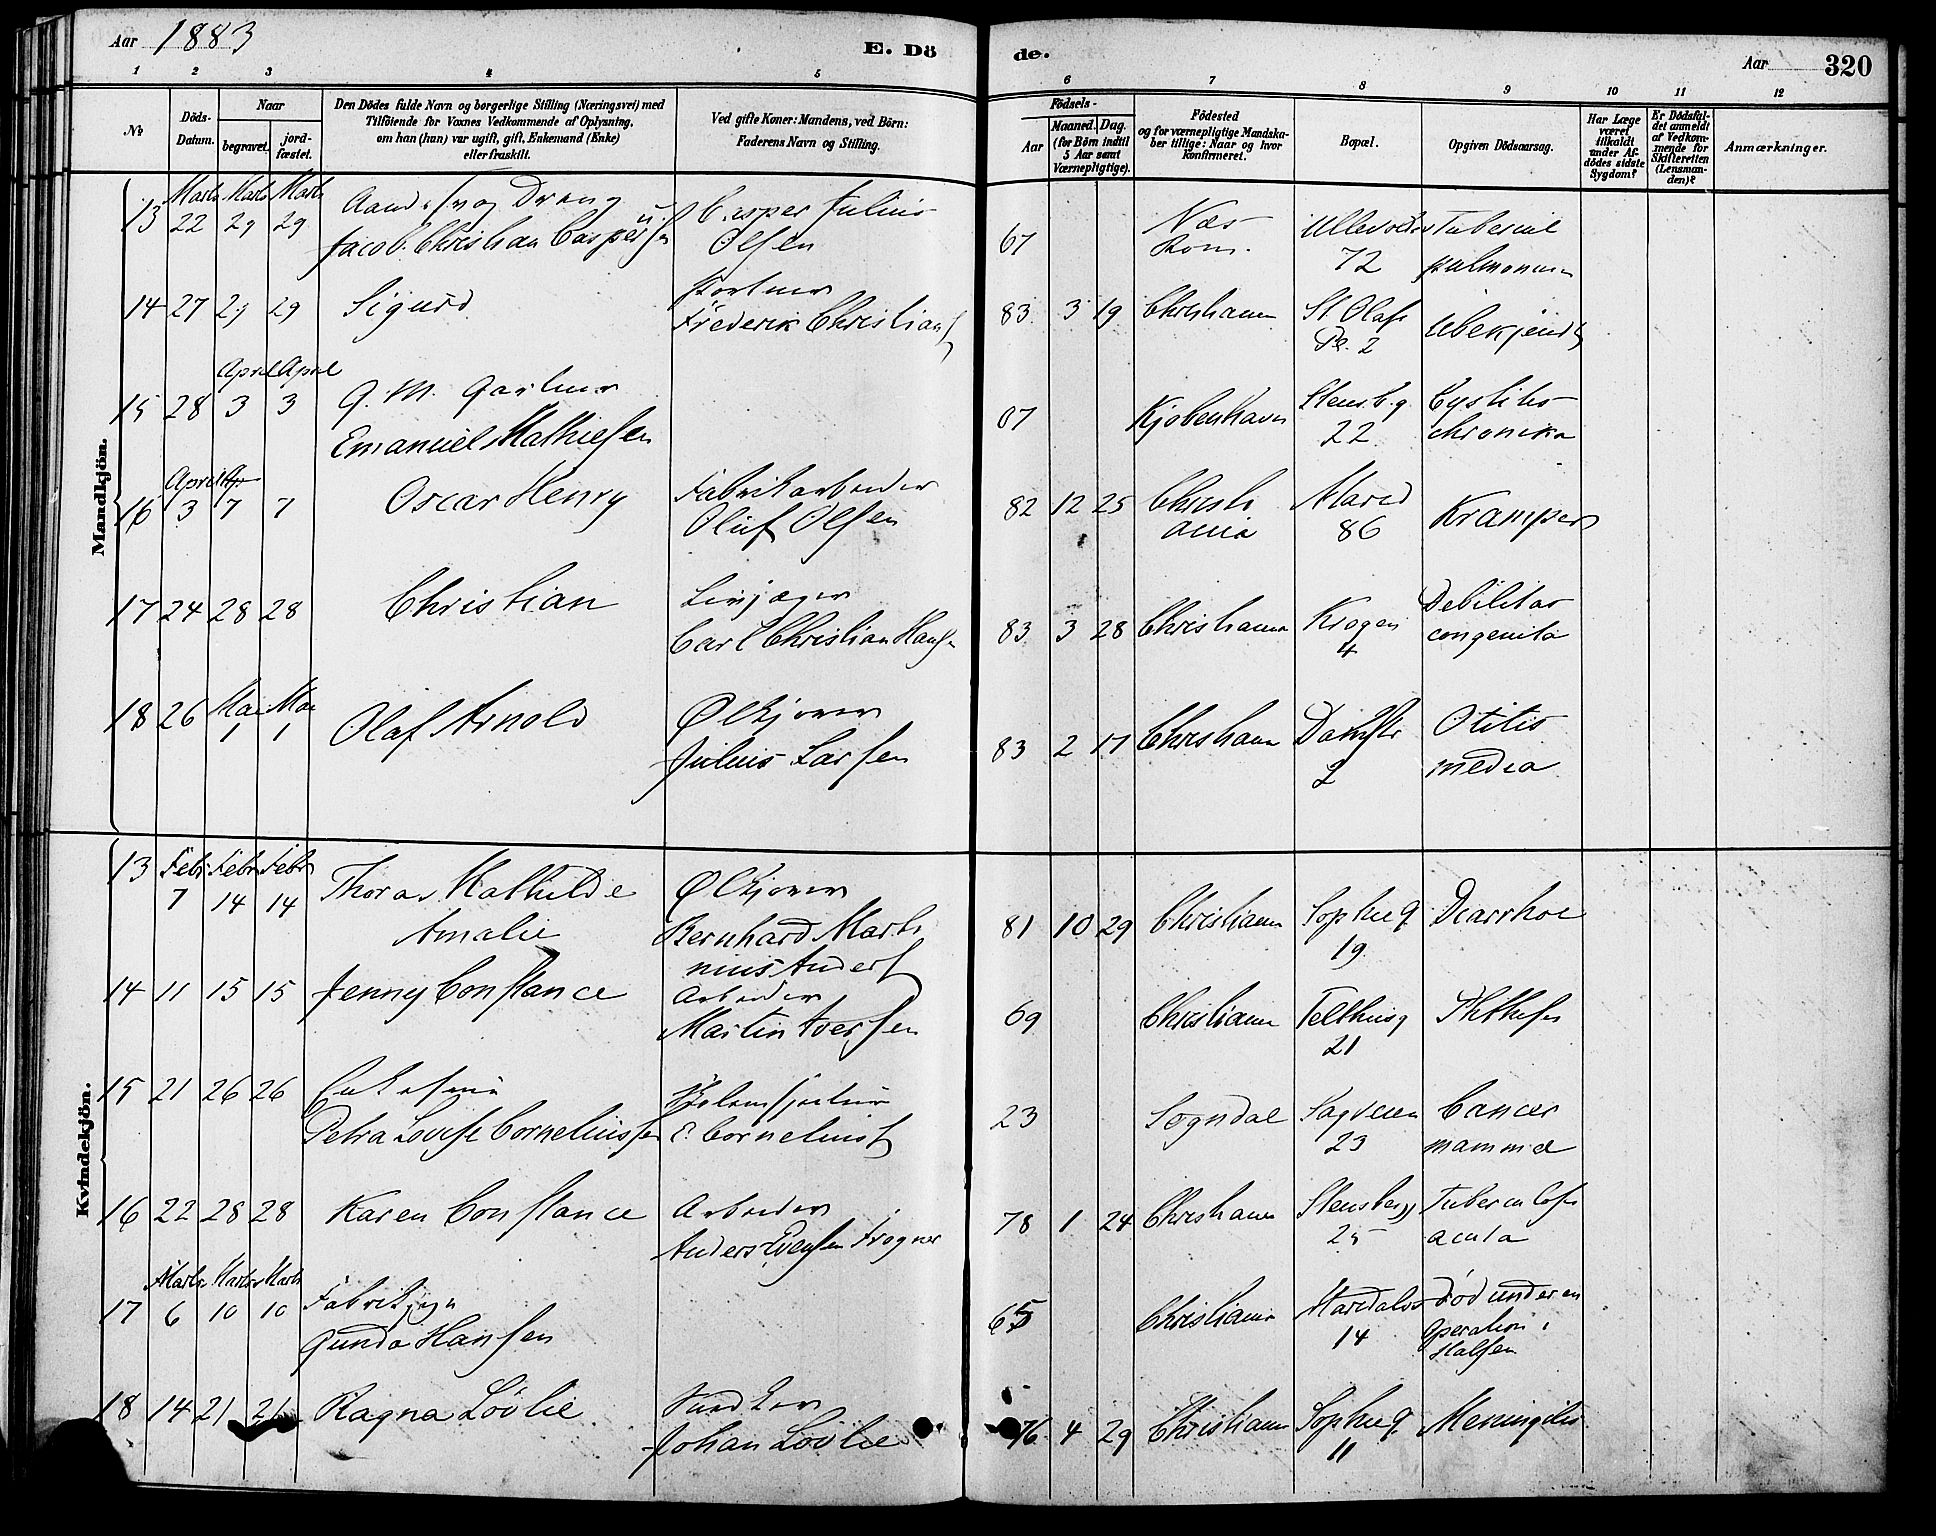 Aar 1883
E. Dö
de.
Aar
320
1 2 3 4 5 6 7 8 9 10 11 12
No
Döds-
Datum.
Naar
begravet.
jord-
fæstet.
Den Dödes fulde Navn og borgerlige Stilling (Næringsvei) med
Tilföiende for Voxnes Vedkommende af Oplysning,
om han (hun) var ugift, gift, Enkemand (Enke)
eller fraskilt.
Ved gifte Koner: Mandens, ved Börn:
Faderens Navn og Stilling.
Födsels-
Aar
Maaned.
Dag.
(for Börn indtil
5 Aar samt
Værnepligtige).
Födested
og for værnepligtige Mandska-
ber tillige: Naar og hvor
konfirmeret.
Bopæl.
Opgiven Dödsaarsag.
Har Læge
været
tilkaldt
under Af-
dödes sidste
Sygdom?
Er Dödsfal-
det anmeldt
af Vedkom-
mende for
Skifteretten
(Lensman-
den)?
Anmærkninger.
Mandkjön.
13 Marts 22 Marts 29 Marts 29
Jacob Christian Caspersen
Casper Julius
Olsen
67
Næs
Rom.
72
14 27 29 29 Sigurd
Portner
Frederik Christians
83 3 19 Christiania
St Olafs
Pl. 2
Ubekjendt
15 28 April 3 April 3
G. M. Gartner
Emanuel Mathiesen
07
Kjøbenhavn
Stensb.g.
22
Cystitis
chronica
16 April 3 7 7
Oscar Henry
Fabrikarbeider
Oluf Olsen
82 12 25
Christi
ania
Marid
86
Kramper
17 24 28 28
Christian
Carl Christian Hansen
83 3 28 Christiania
Krogen
4
Debilitas
congenita
18 26 Mai 1 Mai 1
Olaf Arnold
Ølkjører
Julius Larsen
83 2 17 Christiania
Damstr
2
Otitis
media
Kvindekjön.
13 Febr 7 Febr 14 Febr 14
Thora Mathilde
Amalie
Ølkjører
Bernhard Marti
nius Anders
81 10 29 Christiania
Sophieg
19
Diarrhoe
14 11 15 15 Jenny Constance
Arbeider
Martin Iversen
69
Christiania
Telthusg
21
Phthisis
15 21 26 26
Petra Lovise Corneliussen
E. Cornelius
23
Sogndal
Sagveien
23
Cancer
mammæ
16 22 28 28 Karen Constance
Arbeider
Anders Evensen Frogner
78 1 24 Christiania
Stensbergg
25
Tuberculosis
acuta
17 Marts 6 Marts 10 Marts 10
Gunda Hansen
65
Christiania
Maridalsv
14
Død under en
Operation i
Halsen
18 14 21 21 Ragna Løvlie
Snedker
Johan Løvlie
76 4 29 Christiania
Sophieg.
11
Meningitis